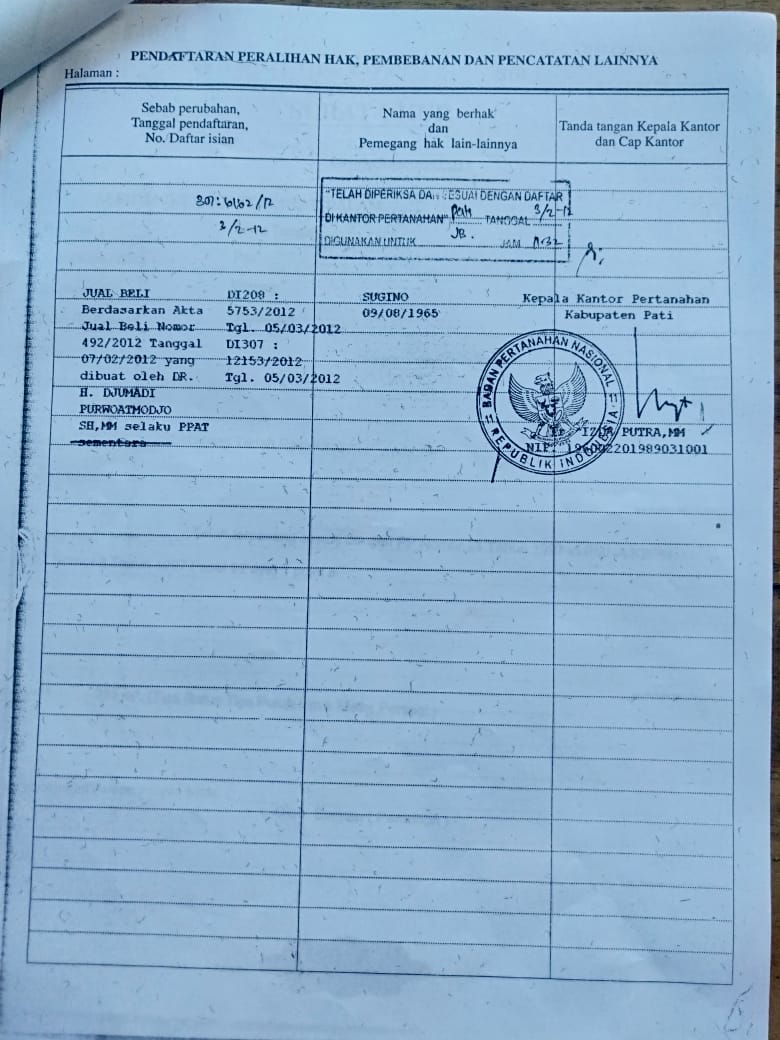 PENDAFTARAN PERALIHAN HAK, PEMBEBANAN DAN PENCATATAN LAINNYA
Halaman :
Sebab perubahan,
Tanggal pendaftaran,
No. Daftar isian
Nama yang berhak
dan
Pemegang hak lain-lainnya
Tanda tangan Kepala Kantor
dan Cap Kantor
307: 6162/12
3/2-12
"TELAH DIPERIKSA DAN SESUAI DENGAN DAFTAR
DI KANTOR PERTANAHAN" Pati TANGGAL 3/2-12
DIGUNAKAN UNTUK JB. JAM
JUAL BELI
Berdasarkan Akta
Jual Beli Nomor
492/2012 Tanggal
07/02/2012 yang
dibuat oleh DR.
H. DJUMADI
PURWOATMODJO
SH,MM selaku PPAT
sementara
DI208 :
5753/2012
Tgl. 05/03/2012
DI307 :
12153/2012
Tgl. 05/03/2012
SUGINO
09/08/1965
Kepala Kantor Pertanahan
Kabupaten Pati
BADAN PERTANAHAN NASIONAL
REPUBLIK INDONESIA
PUTRA,MM
NIP.